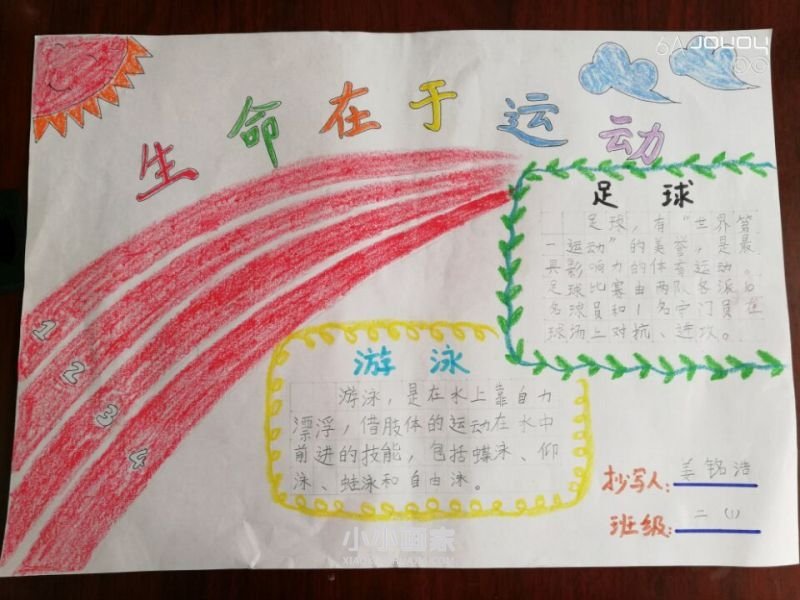 6A JOYOY
生命在于运动
足球
足球，有“世界第
一运动”的美誉，是最
具影响力的体育运动。
足球比赛由两队各派10
名球员和1名守门员在
球场上对抗、进攻。
1
2
3
4
游泳
游泳，是在水上靠自力
漂浮，借肢体的运动在水中
前进的技能，包括蝶泳、仰
泳、蛙泳和自由泳。
抄写人：姜铭浩
班级：二（1）
小小画家